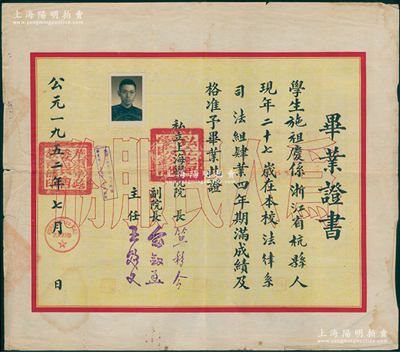 上海陽明拍賣
www.yangmingauction.com
畢業證書
學生施祖慶係浙江省杭縣人
現年二十七歲在本校法律系
司法組肄業四年期滿成績及
格准予畢業此證
私立上海學院院長
副院長
主任
公元一九五二年七月 日
為人民服務
上海陽明拍賣
www.yangmingauction.com